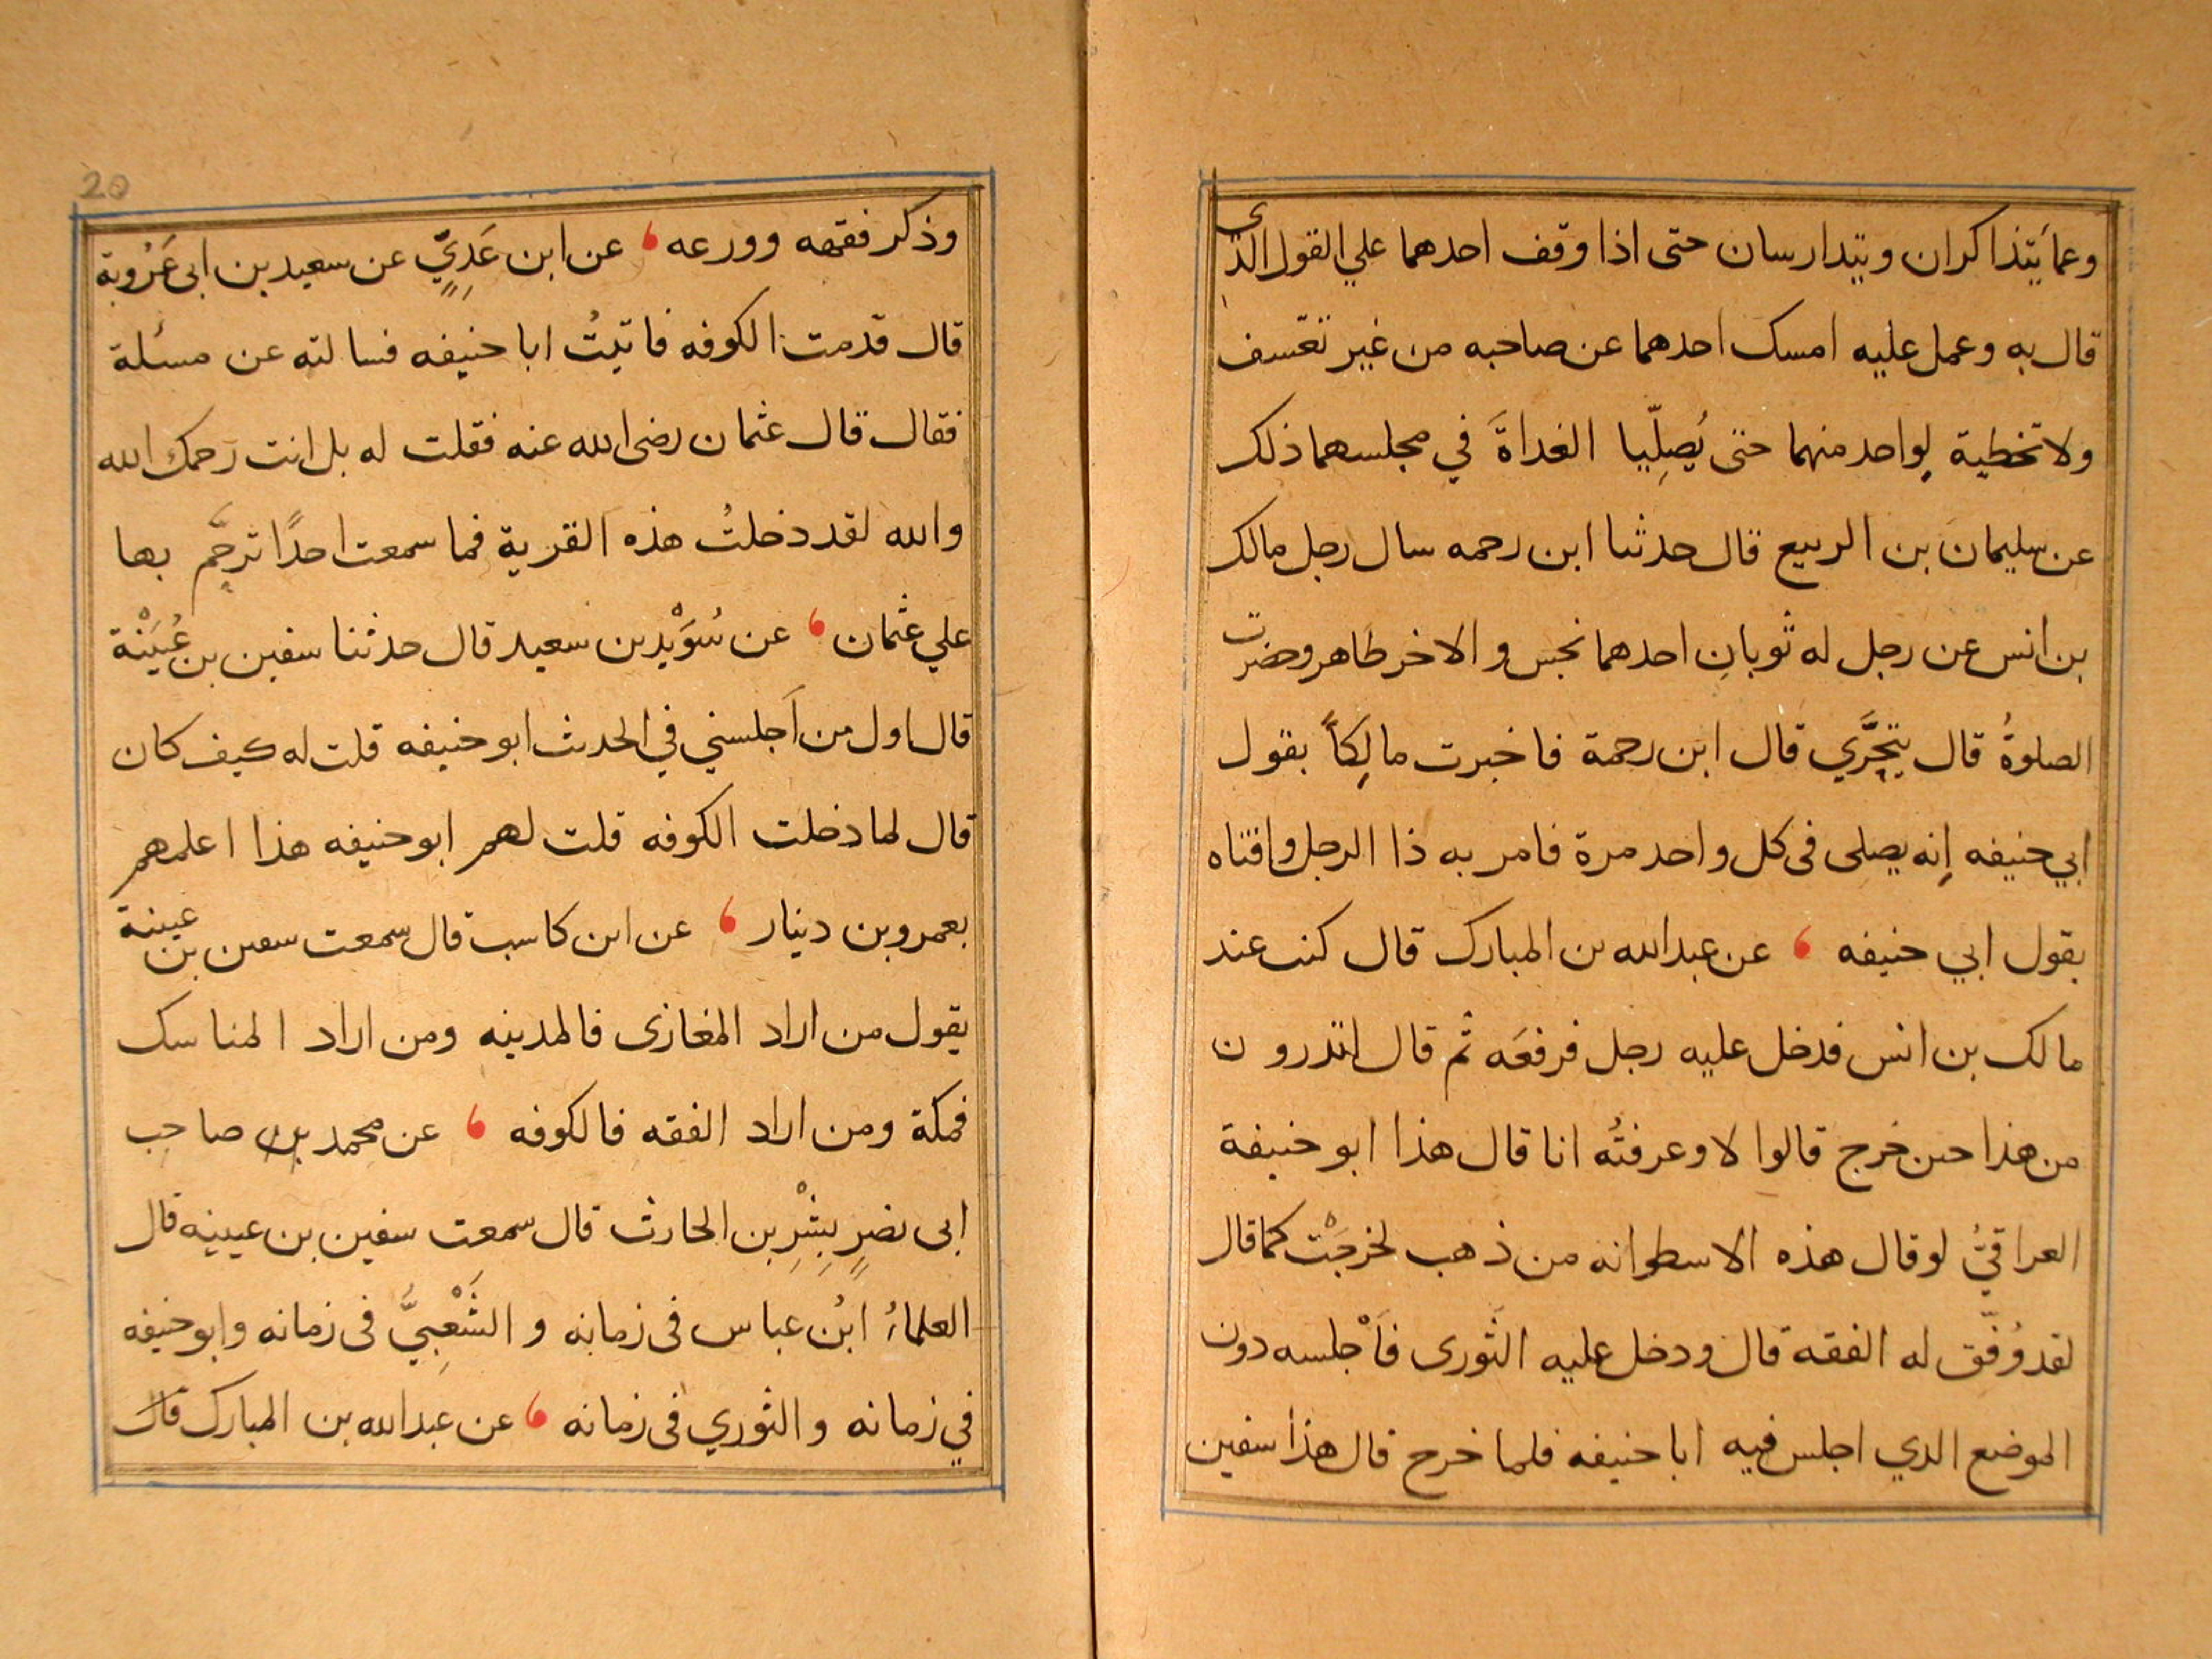 وهما يتذاكران ويتدارسان حتى اذا وقف احدهما علي القول الذى
قال به وعمل عليه امسك احدهما عن صاحبه من غير تعّسف
ولا تخطية لِواحد منهما حتى يُصلِّيا الغداةَ في مجلسهما ذلك
عن سليمان بن الربيع قال حدثنا ابن رحمه سال رجل مالك
بن انس عن رجل له ثوبانِ احدهما نجس والاخر طاهر وحضرت
الصلوةُ قال يتحَّري قال ابن رحمة فاخبرت مالِكاً بقول
ابي حنيفه إنه يصلى فى كل واحد مرة فامر به ذا الرجل وافتاه
بقول ابي حنيفه ، عن عبدالله بن المبارك قال كنت عند
مالك بن انس فدخل عليه رجل فرفعَه ثم قال اتدرون
من هذا حين خرج قالوا لا وعرفتُه انا قال هذا ابو حنيفة
العراقيُّ لو قال هذه الاسطوانه من ذهب لخرجَتْ كما قال
لقد وُفّق له الفقه قال ودخل عليه الثَورى فَاَجْلسه دون
الموضع الذي اجلس فيه ابا حنيفه فلما خرج قال هذا سفين
20
وذكر فقهه وورعه ، عن ابن عَدِيٍّ عن سعيد بن ابى عَرُوبة
قال قدمت الكوفه فاتيتُ ابا حنيفه فسالته عن مسئلة
فقال قال عثمان رضى الله عنه فقلت له بل انت رَحمك الله
والله لقد دخلتُ هذه القرية فما سمعت احدًا ترحَّم بها
علي عثمان ، عن سُوَيْد بن سعيد قال حدثنا سفين بن عُيَيْنة
قال اول من اَجلسني في الحديث ابو حنيفه قلت له كيف كان
قال لما دخلت الكوفه قلت لهم ابو حنيفه هذا اعلمهم
بعمرو بن دينار ، عن ابن كاسب قال سمعت سفين بن عيينة
يقول من اراد المغازى فالمدينه ومن اراد المناسك
فمكة ومن اراد الفقه فالكوفه ، عن محمد بن صاحب
ابى نصرٍ بِشْرِ بن الحارث قال سمعت سفين بن عيينه قال
العلماءُ ابنُ عباس فى زمانه و الشَعْبِيَّ فى زمانه وابو حنيفه
في زمانه و الثوري فى زمانه ، عن عبدالله بن المبارك قال